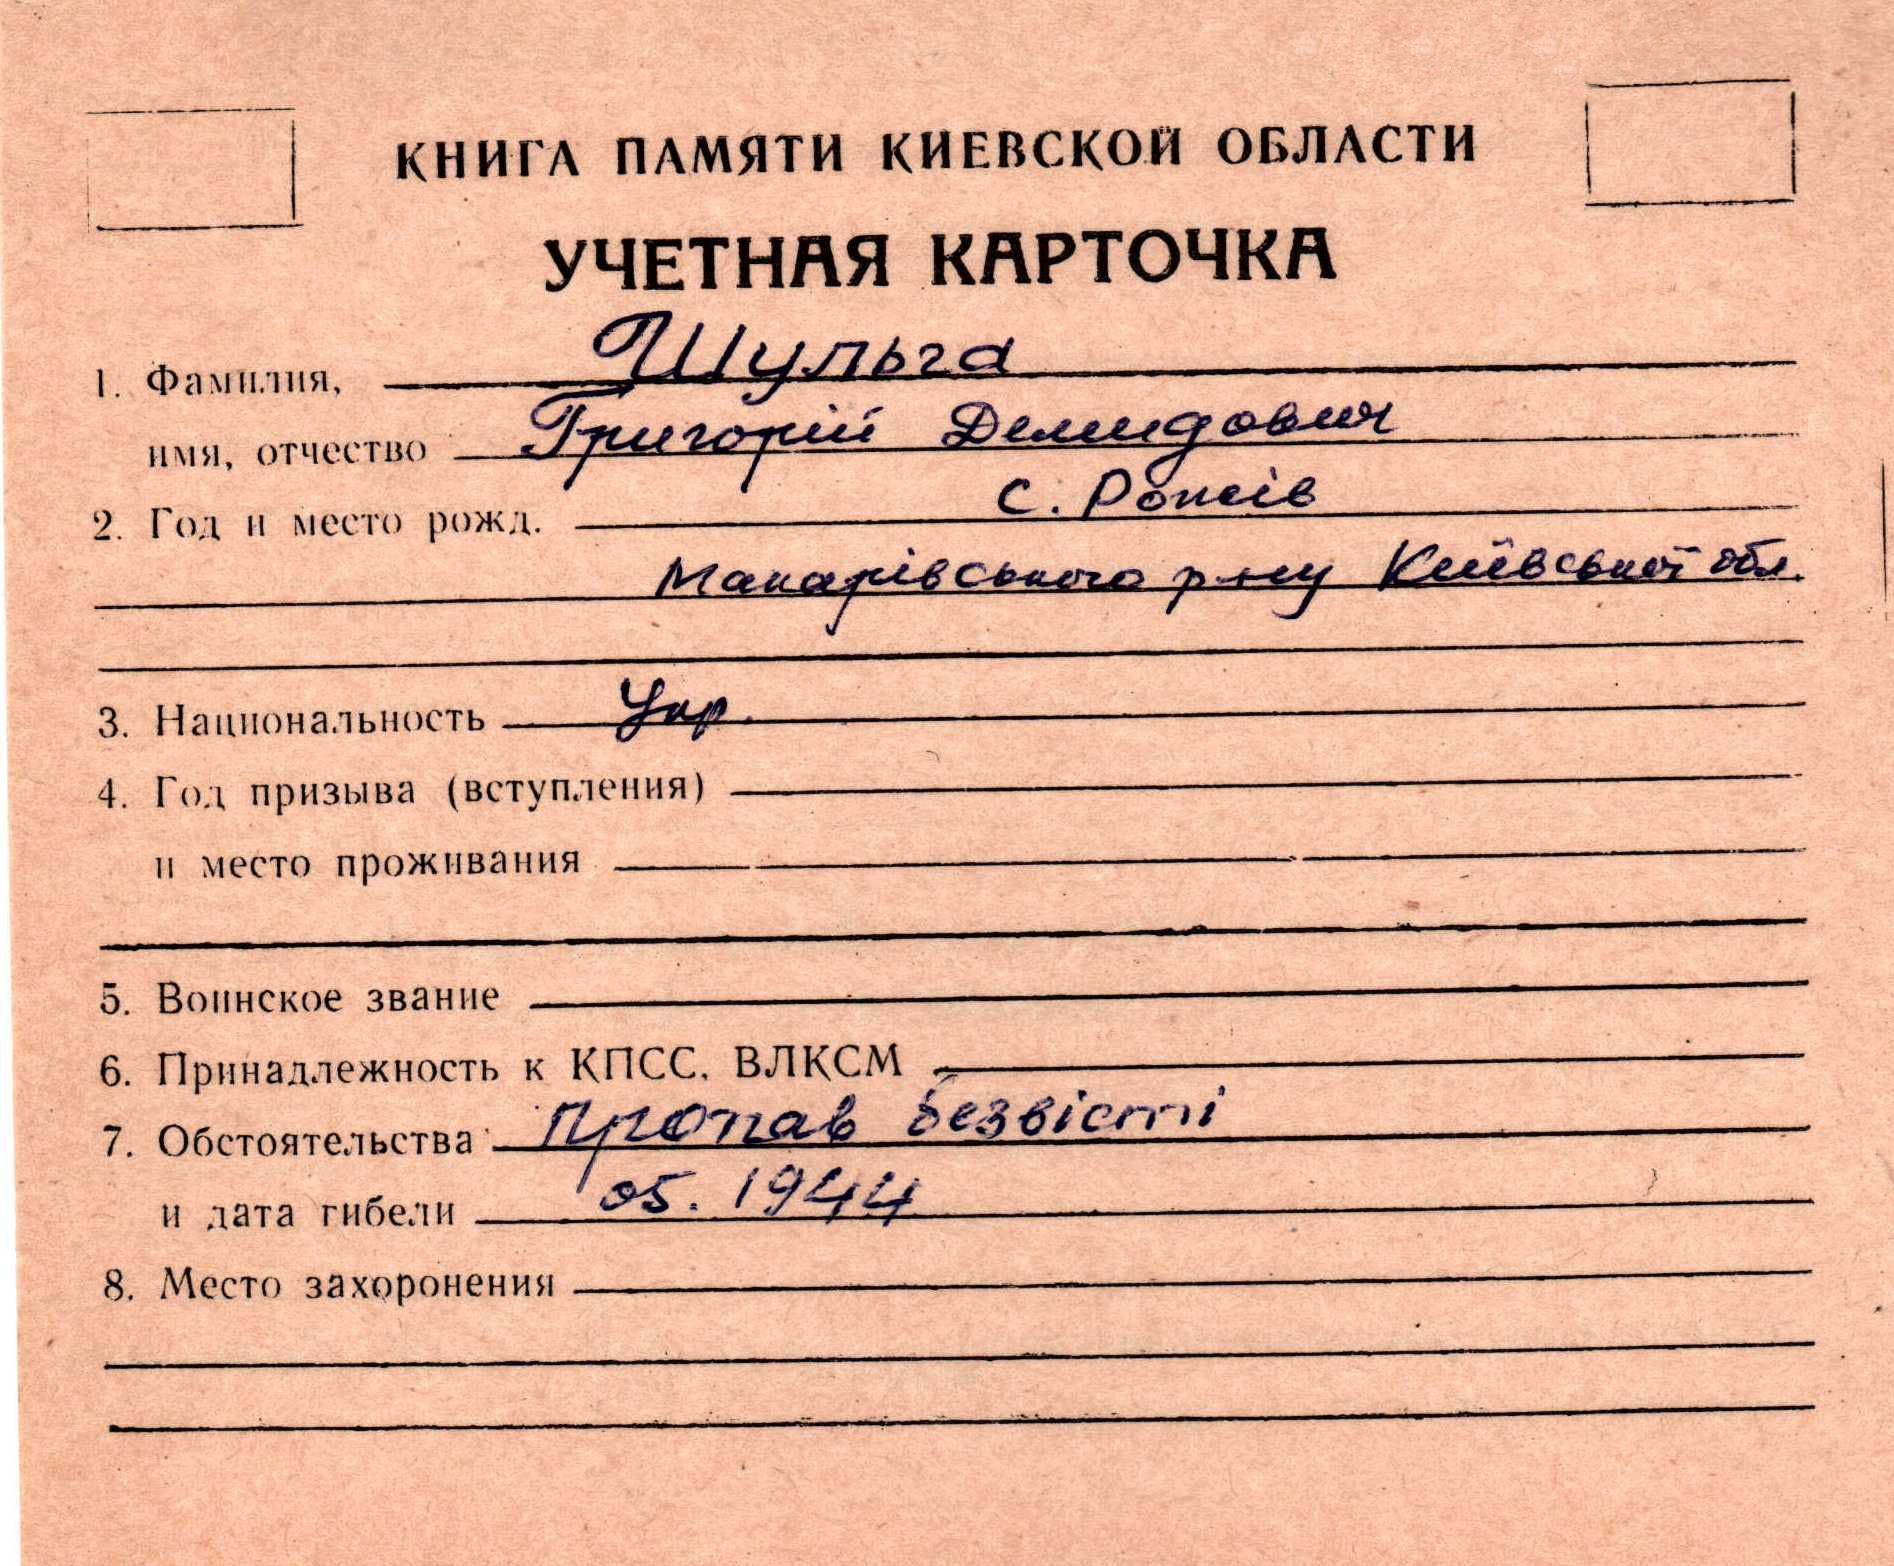 КНИГА ПАМЯТИ КИЕВСКОЙ ОБЛАСТИ
УЧЕТНАЯ КАРТОЧКА
1. Фамилия, Шульга
имя, отчество Григорій Демидович
2. Год и место рожд. с. Рожів
Макарівського р-ну Київської обл.
3. Национальность Укр.
4. Год призыва (вступления)
и место проживания
5. Воинское звание
6. Принадлежность к КПСС, ВЛКСМ
7. Обстоятельства Пропав безвісті
и дата гибели 05. 1944
8. Место захоронения